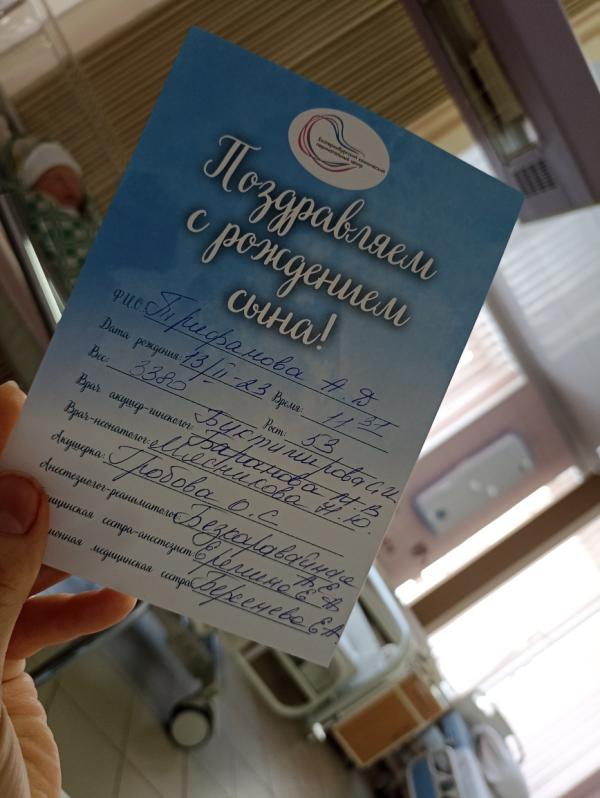 Екатеринбургский клинический
перинатальный центр
Поздравляем
с рождением
сына!
ФИО: Трифанова А. Д
Дата рождения: 13/II-23 Время: 11 31
Вес: 3380 Рост: 53
Врач акушер-гинеколог: Биктимирова
Баранова Н. В
Врач-неонатолог: Мясникова Н. Ю.
Акушерка: Гробова О. С
Анестезиолог-реаниматолог:
медицинская сестра-анестезист: Еремина Е. В
ионная медицинская сестра: Баженова Е. А.